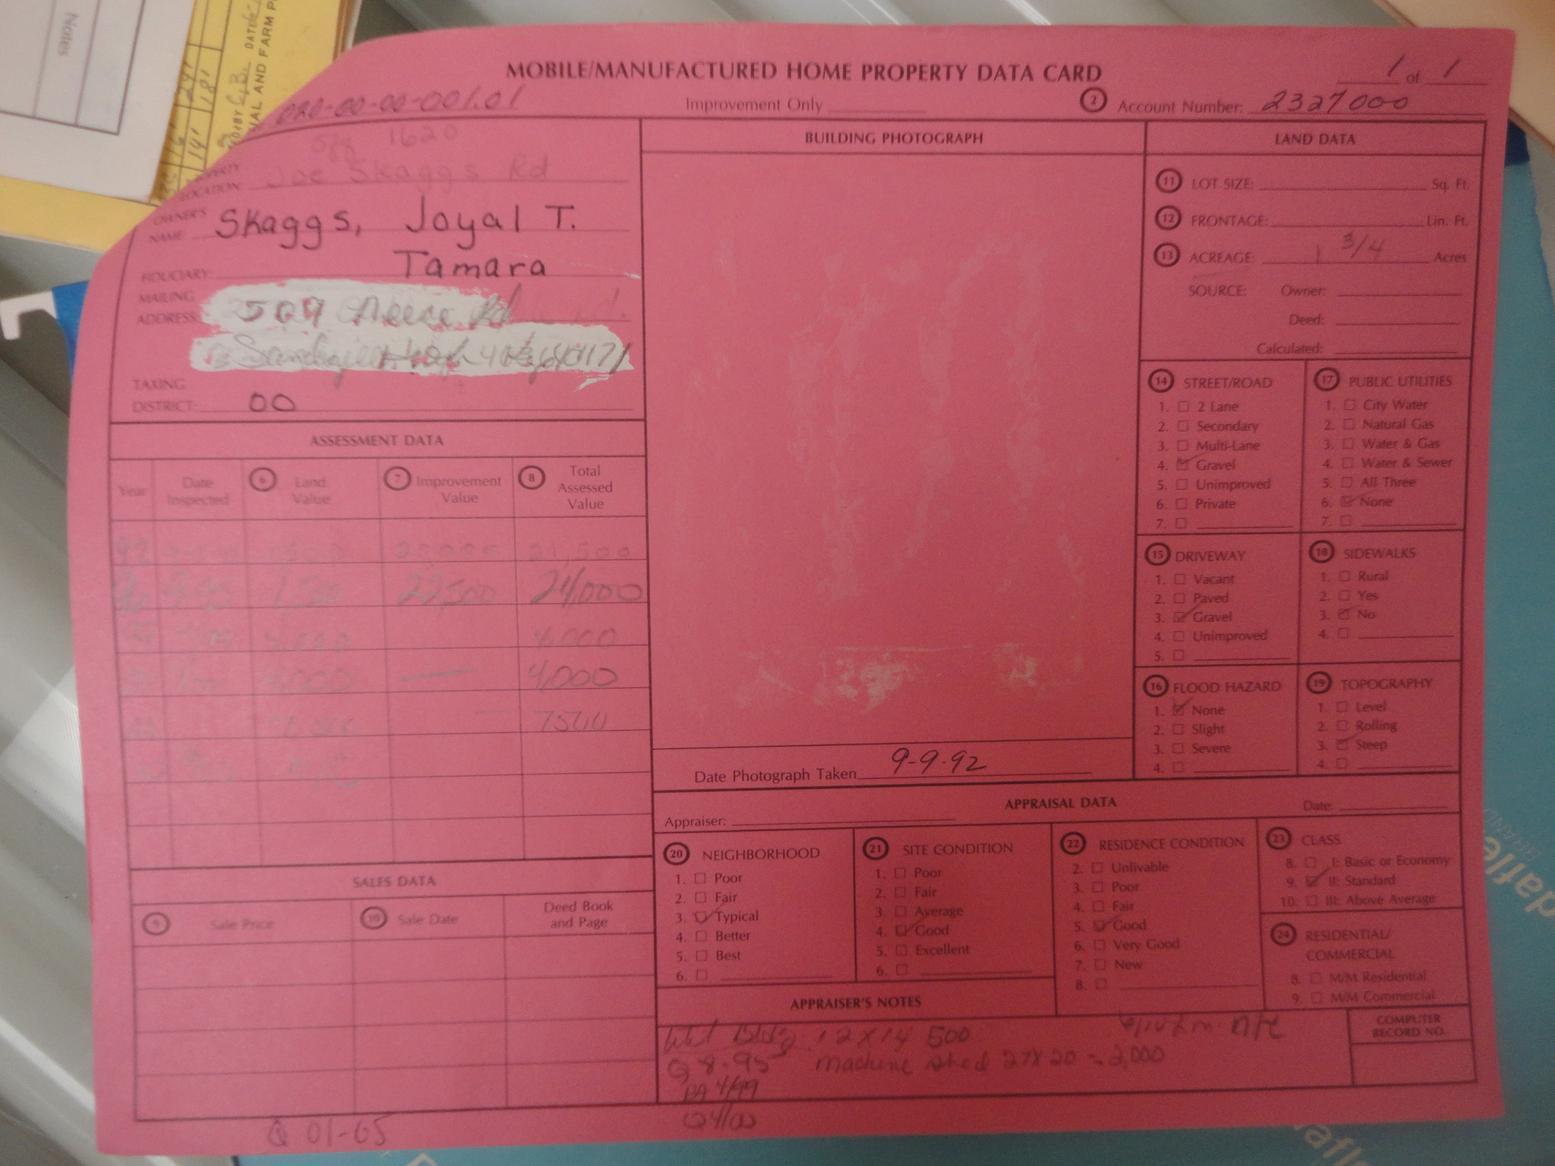 Notes
MOBILE/MANUFACTURED HOME PROPERTY DATA CARD
1 of 1
020-00-00-001.01
Improvement Only
2 Account Number: 2327000
1620
LOCATION: Joe Skaggs Rd
OWNER'S
NAME: Skaggs, Joyal T.
Tamara
FIDUCIARY:
MAILING
ADDRESS: 509 Rd
TAXING
DISTRICT: 00
ASSESSMENT DATA
Year
Date Inspected
6 Land Value
7 Improvement Value
8 Total Assessed Value
21,500
22,500 24,000
4,000
4,000 — 4,000
7500
SALES DATA
9 Sale Price
10 Sale Date
Deed Book and Page
01-65
BUILDING PHOTOGRAPH
Date Photograph Taken 9-9-92
LAND DATA
11 LOT SIZE: Sq. Ft.
12 FRONTAGE: Lin. Ft.
13 ACREAGE: 3/4 Acres
SOURCE: Owner:
Deed:
Calculated:
14 STREET/ROAD
1. 2 Lane
2. Secondary
3. Multi-Lane
4. Gravel
5. Unimproved
6. Private
7.
17 PUBLIC UTILITIES
1. City Water
2. Natural Gas
3. Water & Gas
4. Water & Sewer
5. All Three
6. None
7.
15 DRIVEWAY
1. Vacant
2. Paved
3. Gravel
4. Unimproved
5.
18 SIDEWALKS
1. Rural
2. Yes
3. No
4.
16 FLOOD HAZARD
1. None
2. Slight
3. Severe
4.
19 TOPOGRAPHY
1. Level
2. Rolling
3. Steep
4.
APPRAISAL DATA
Appraiser:
Date:
20 NEIGHBORHOOD
1. Poor
2. Fair
3. Typical
4. Better
5. Best
6.
21 SITE CONDITION
1. Poor
2. Fair
3. Average
4. Good
5. Excellent
6.
22 RESIDENCE CONDITION
2. Unlivable
3. Poor
4. Fair
5. Good
6. Very Good
7. New
8.
23 CLASS
8. I: Basic or Economy
9. II: Standard
10. III: Above Average
24 RESIDENTIAL/
COMMERCIAL
8. M/M Residential
9. M/M Commercial
APPRAISER'S NOTES
Bldg 12 X 14 500
8-95 machine shed 27X20 - 2,000
4/99
COMPUTER
RECORD NO.